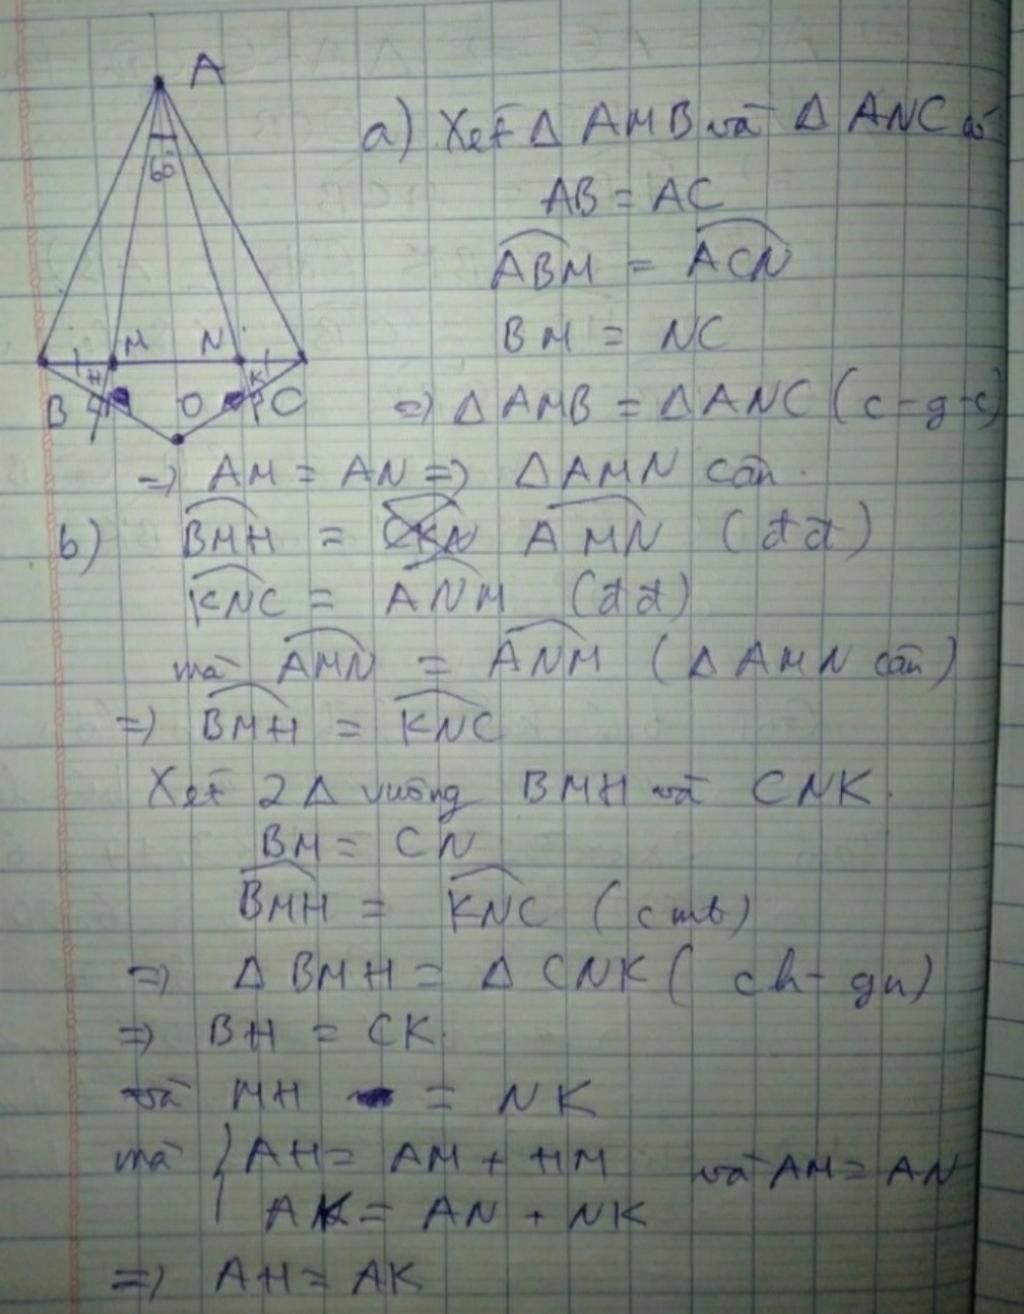 A
60°
M N
H K
B O C
a) Xét Δ AMB và Δ ANC có
AB = AC
ABM = ACN
BM = NC
=) Δ AMB = Δ ANC (c-g-c)
=) AM = AN =) Δ AMN cân.
b) BMH = CKN AMN (đđ)
KNC = ANM (đđ)
mà AMN = ANM (Δ AMN cân)
=) BMH = KNC
Xét 2 Δ vuông BMH và CNK.
BM = CN
BMH = KNC (cmt)
=) Δ BMH = Δ CNK (ch-gn)
=) BH = CK.
và MH = NK
mà { AH = AM + HM và AM = AN
AK = AN + NK
=) AH = AK